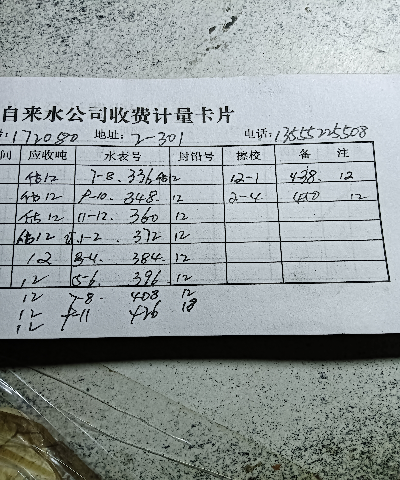 自来水公司收费计量卡片
: 172080 地址: 2-301 电话: 13555225508
间 应收吨 水表号 封铅号 檫校 备 注
估12 7-8. 336 估12 12-1 438. 12
估12 9-10. 348. 12 2-4. 450 12
估12 11-12. 360 12
估12 1-2 372 12
12 3-4. 384. 12
12 5-6. 396 12
12 7-8. 408 12
12 9-11 426 18
12